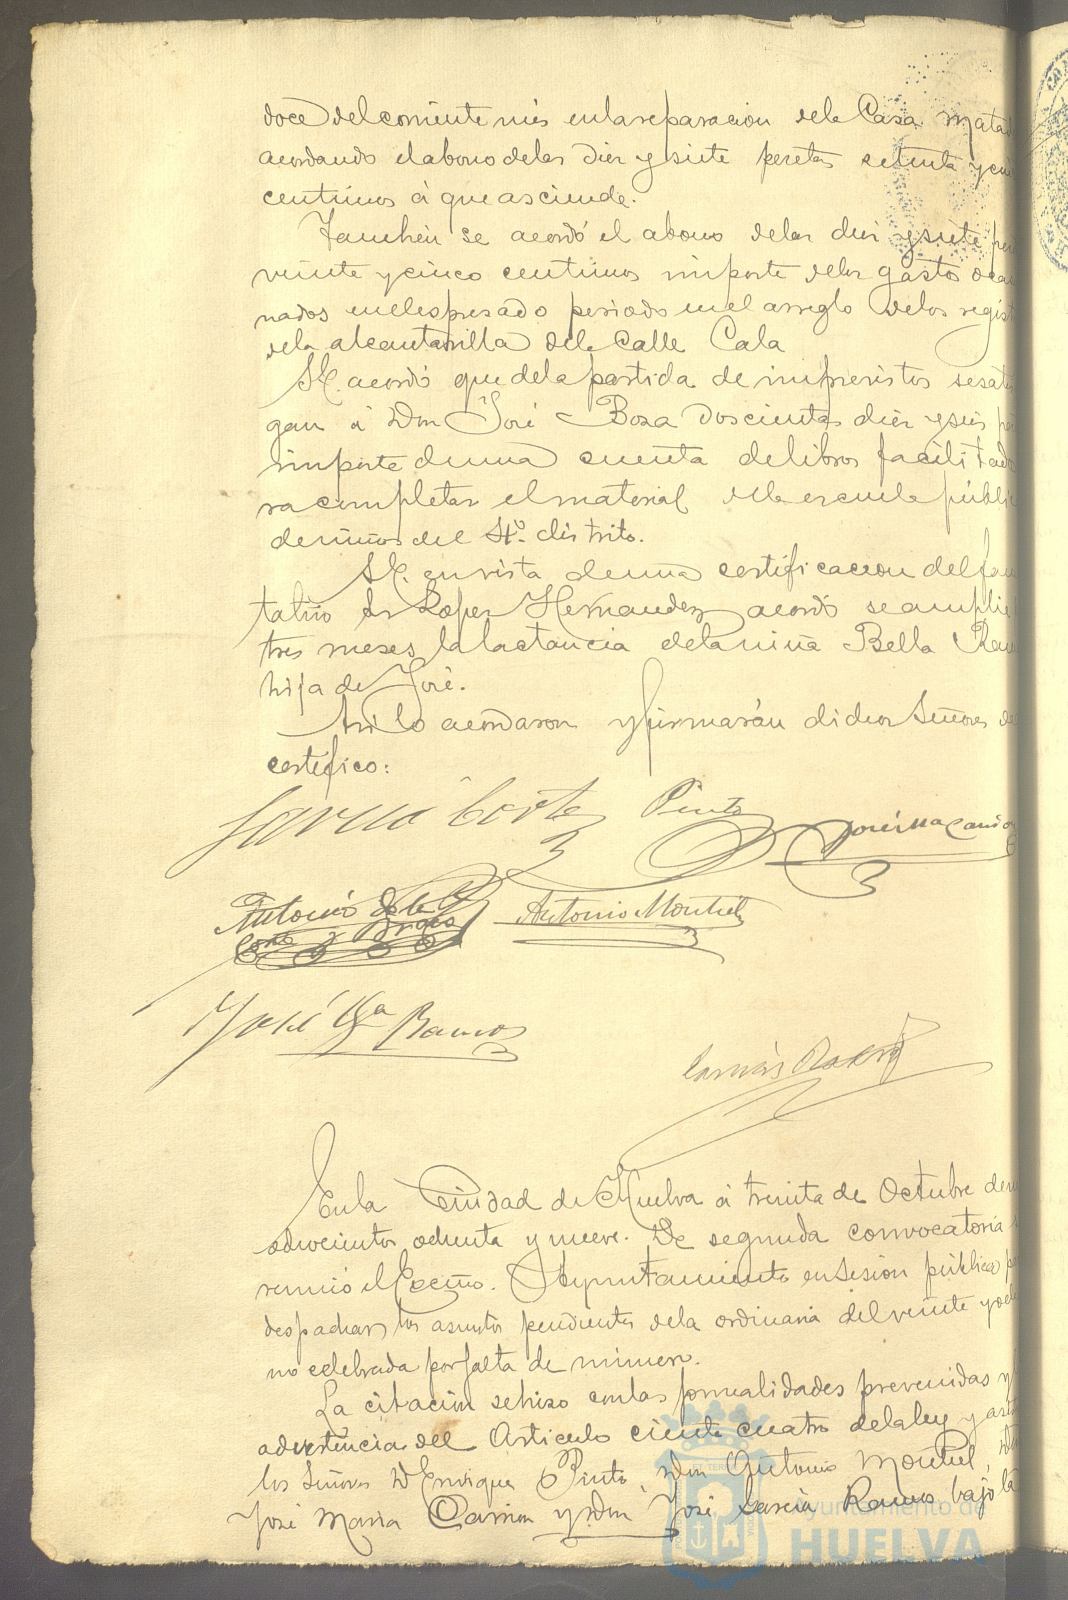 doce del corriente mes en la reparacion dela Casa Matad
acordando el abono delas diez y siete pesetas setenta y cin
centimos á que asciende.
Tambien se acordó el abono delas diez y siete pes
veinte y cinco centimos importe delos gastos ocasi
nados en el espresado periodo en el arreglo delos regist
dela alcantarilla dela Calle Cala
Id. acordó que dela partida de imprevistos se satis
gan á Don José Bosa doscientas diez y seis pe
importe de una cuenta de libros facilitados
ra completar el material dela escuela públic
de niños del 4º distrito.
Id. en vista de una certificacion del facu
tativo Sr Lopez Hernandez acordó se amplie
tres meses la lactancia dela niña Bella Ram
hija de José.
Asi lo acordaron y firmarán dichos Señores de
certifico:
Garcia Cortes Pinto José Mª Carrion
Antonio de la
Corte y Antonio Montiel
José Gª Ramos
En la Ciudad de Huelva á treinta de Octubre de mi
ochocientos ochenta y nueve. De segunda convocatoria s
reunió el Excmo. Ayuntamiento en sesion pública pa
despachar los asuntos pendientes dela ordinaria del veinte y och
no celebrada por falta de número.
La citacion se hizo con las formalidades prevenidas y
advertencia del Articulo ciento cuatro dela ley y asis
los Señores D Enrique Pinto, Don Antonio Montiel, Don
José Maria Carrion y Don José Garcia Ramos bajo la
Ayuntamiento de
HUELVA